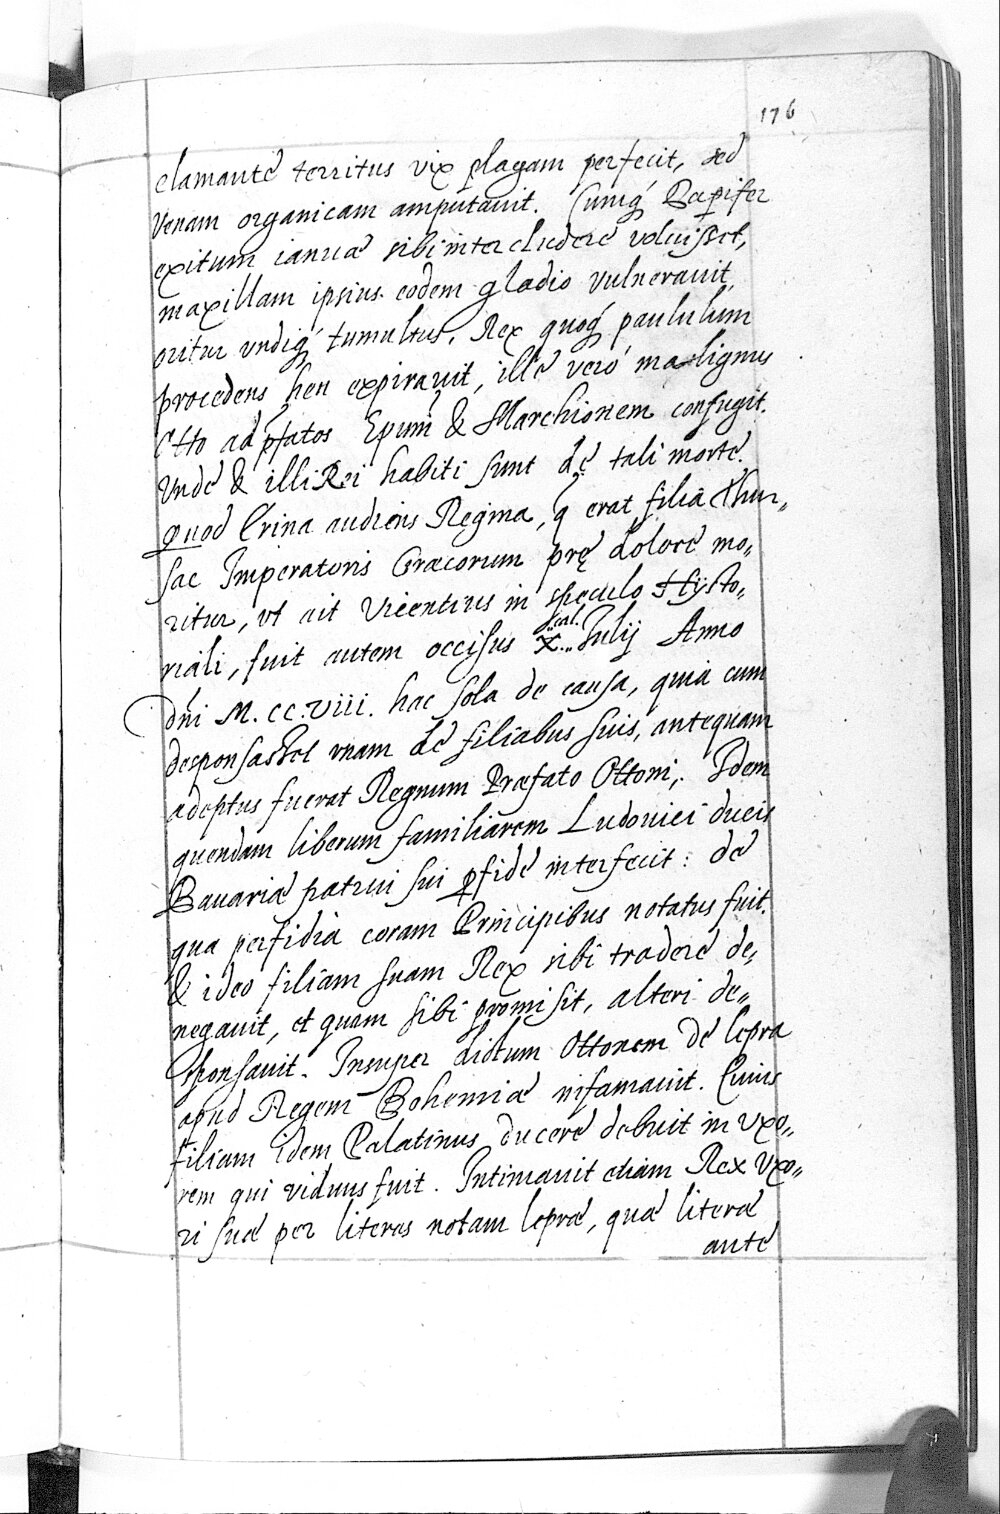 176
clamante territus vix plagam perfecit, sed
Venam organicam amputauit. Cumq́ Dapifer
exitum ianuæ sibi intercludere voluisset,
maxillam ipsius eodem gladio vulnerauit,
oritur vndiq́ tumultus, Rex quoq́ paululum
procedens heu expirauit, ille vero malignus
Otto ad p̄fatos Ep̄um & Marchionem confugit.
Vnde & illi Rei habiti sunt de tali morte.
quod Erina audiens Regina, q̄ erat filia Thur„
sac Imperatoris Græcorum prę dolore mo„
ritur, vt ait Vicentius in speculo Hÿsto„
riali, fuit autem occisus X. cal. Iulij Anno
dn̄i M. CC. VIII. hac sola de causa, quia cum
desponsasset vnam de filiabus suis, antequam
adeptus fuerat Regnum Præfato Ottoni, Idem
quendam liberum familiarem Ludouici ducis
Bauariæ patrui sui p̱fide interfecit: de
qua perfidia coram Principibus notatus fuit.
& ideo filiam suam Rex sibi tradere de„
negauit, et quam sibi promisit, alteri de„
sponsauit. Insuper dictum Ottonem de lepra
apud Regem Bohemiæ infamauit. Cuius
filiam idem Palatinus ducere debuit in vxo„
rem qui viduus fuit. Intimauit etiam Rex vxo„
ri suæ per literas notam lepræ, quæ literæ
ante